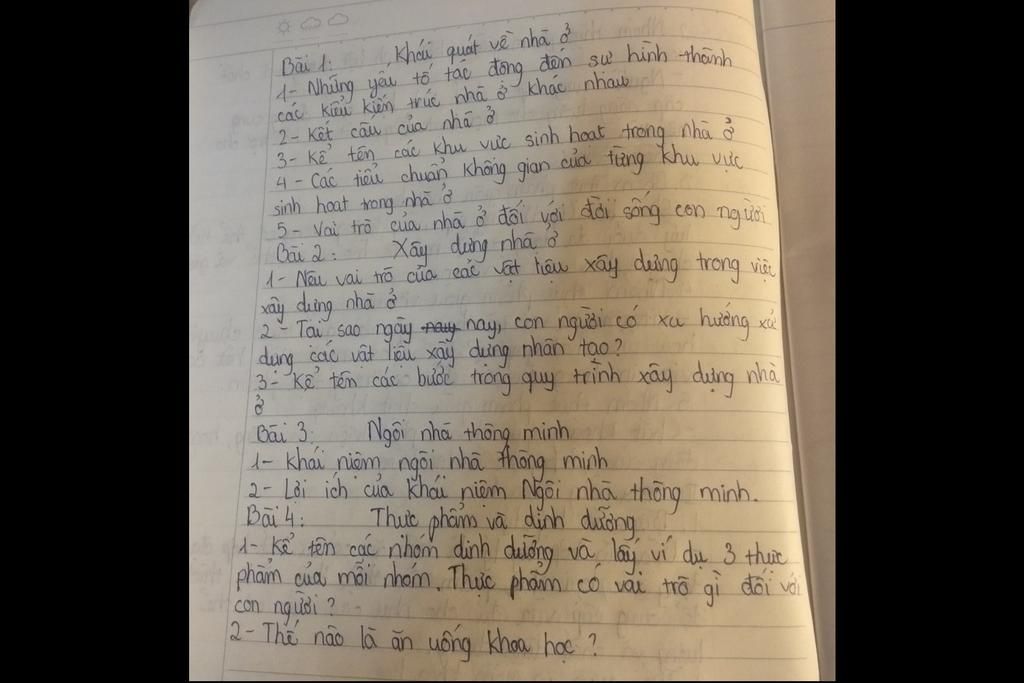 Bài 1: Khái quát về nhà ở
1- Những yếu tố tác động đến sự hình thành
các kiểu kiến trúc nhà ở khác nhau
2- Kết cấu của nhà ở
3- Kể tên các khu vực sinh hoạt trong nhà ở
4- Các tiêu chuẩn không gian của từng khu vực
sinh hoạt trong nhà ở
5- Vai trò của nhà ở đối với đời sống con người
Bài 2: Xây dựng nhà ở
1- Nêu vai trò của các vật liệu xây dựng trong việc
xây dựng nhà ở
2- Tại sao ngày nay, con người có xu hướng sử
dụng các vật liệu xây dựng nhân tạo?
3- Kể tên các bước trong quy trình xây dựng nhà
ở
Bài 3: Ngôi nhà thông minh
1- Khái niệm ngôi nhà thông minh
2- Lợi ích của khái niệm Ngôi nhà thông minh.
Bài 4: Thực phẩm và dinh dưỡng
1- Kể tên các nhóm dinh dưỡng và lấy ví dụ 3 thực
phẩm của mỗi nhóm. Thực phẩm có vai trò gì đối với
con người?
2- Thế nào là ăn uống khoa học?